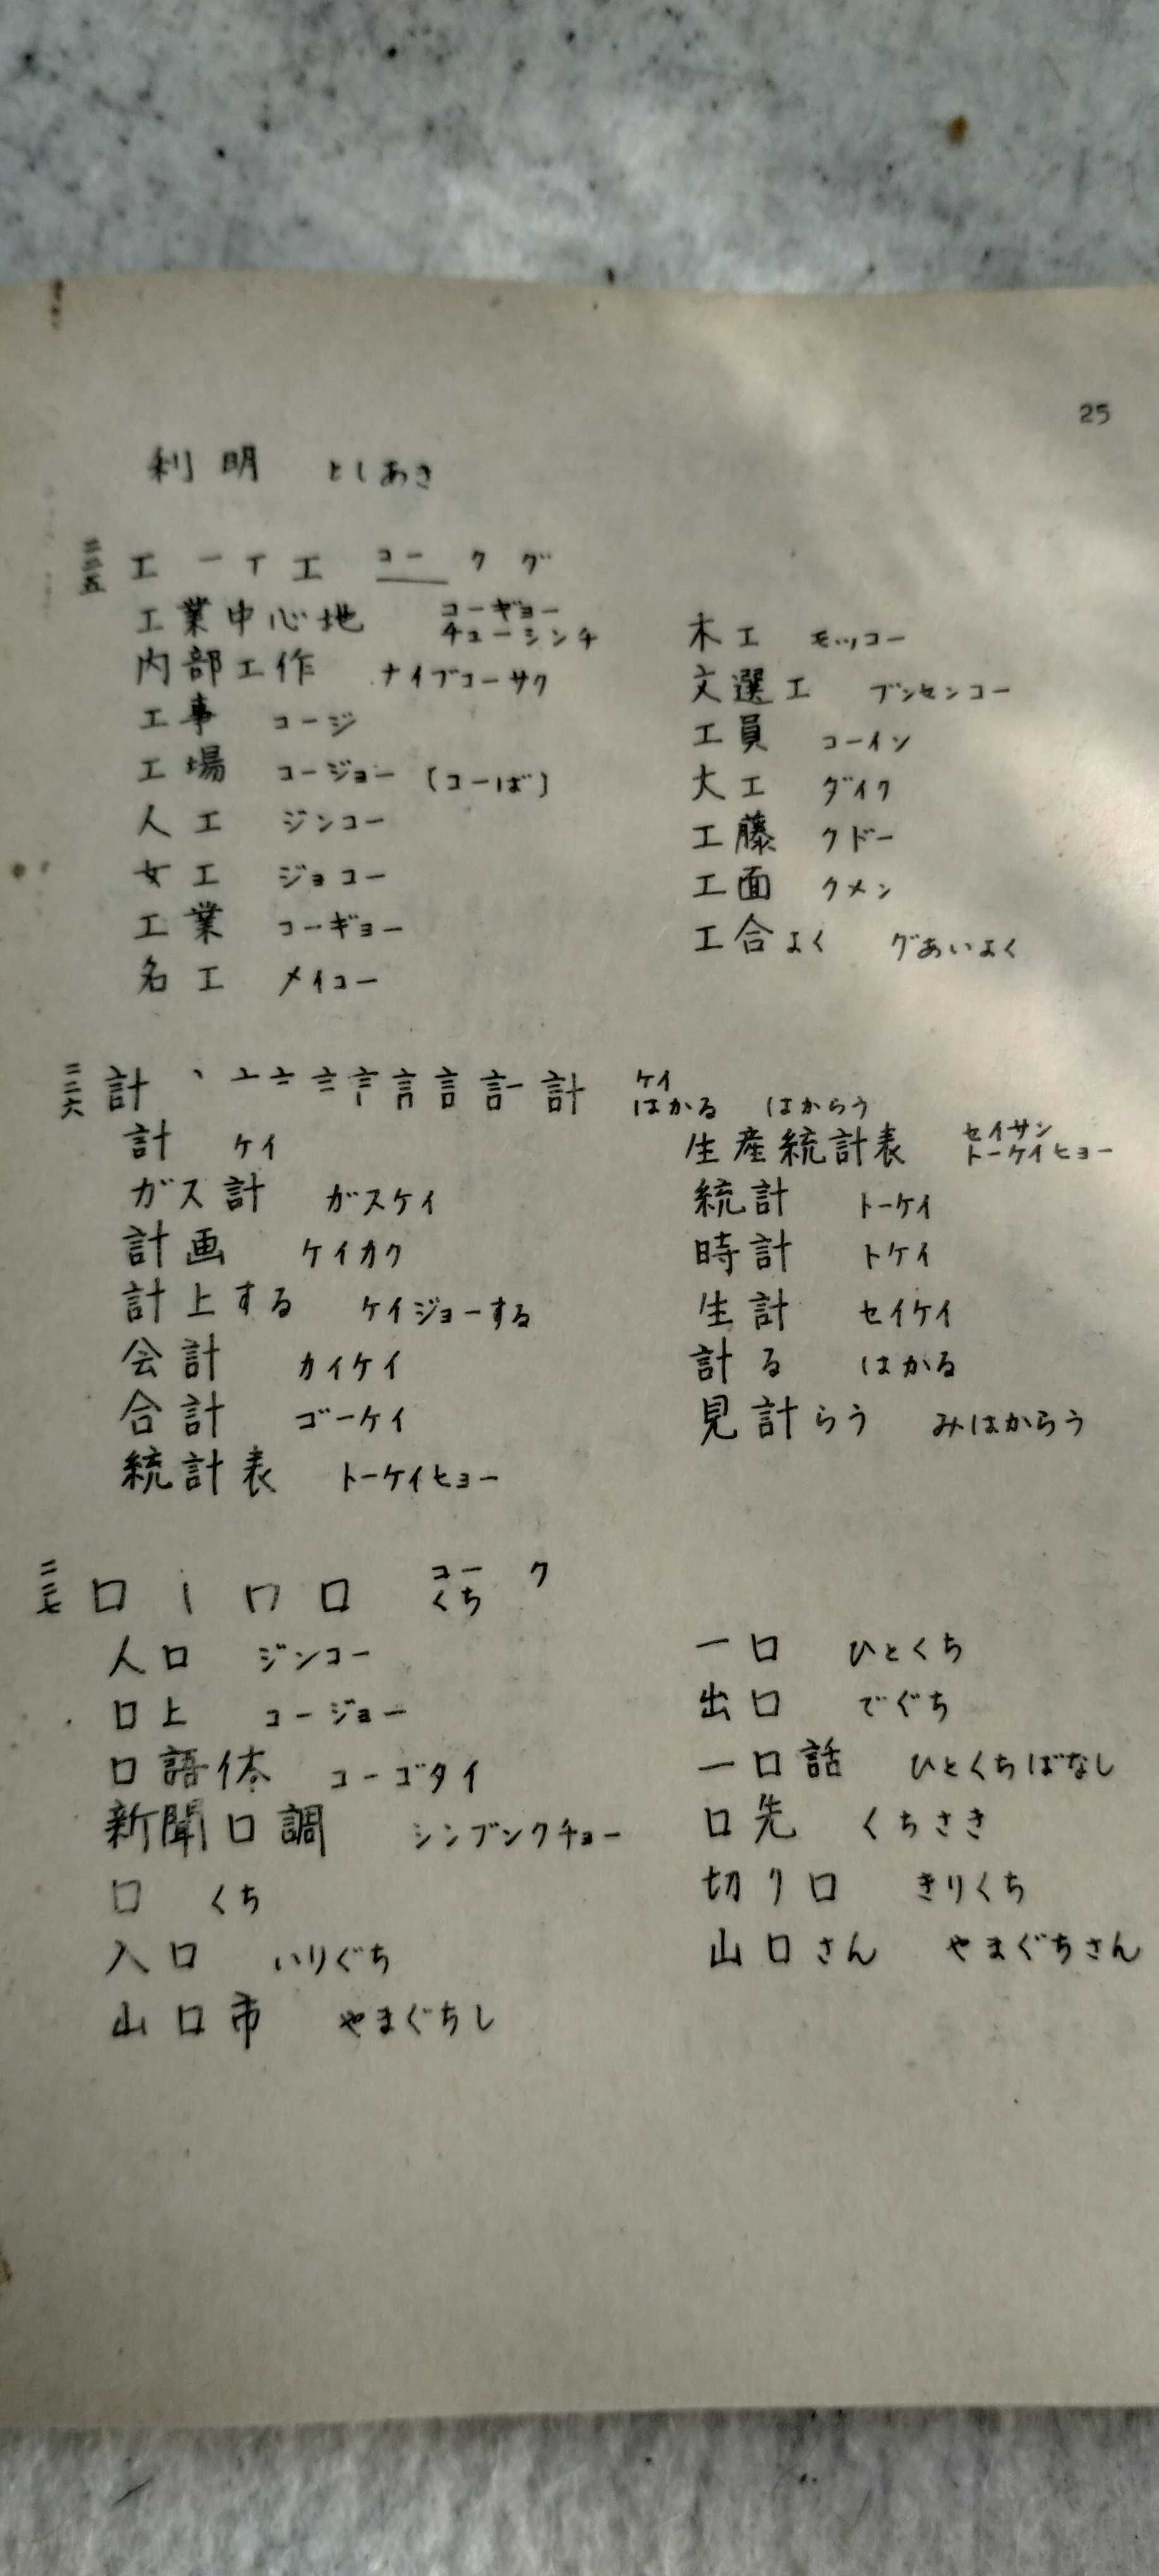 25
利明 としあき
二二五 工 一 丅 工 コー ク グ
工業中心地 コーギョー チューシンチ
内部工作 ナイブコーサク
工事 コージ
工場 コージョー (コーば)
人工 ジンコー
女工 ジョコー
工業 コーギョー
名工 メイコー
木工 モッコー
文選工 ブンセンコー
工員 コーイン
大工 ダイク
工藤 クドー
工面 クメン
工合よく グあいよく
二二六 計 計 ケイ はかる はからう
計 ケイ
ガス計 ガスケイ
計画 ケイカク
計上する ケイジョーする
会計 カイケイ
合計 ゴーケイ
統計表 トーケイヒョー
生産統計表 セイサン トーケイヒョー
統計 トーケイ
時計 トケイ
生計 セイケイ
計る はかる
見計らう みはからう
二二七 口 丨 冂 口 コー ク くち
人口 ジンコー
口上 コージョー
口語体 コーゴタイ
新聞口調 シンブンクチョー
口 くち
入口 いりぐち
山口市 やまぐちし
一口 ひとくち
出口 でぐち
一口話 ひとくちばなし
口先 くちさき
切り口 きりくち
山口さん やまぐちさん